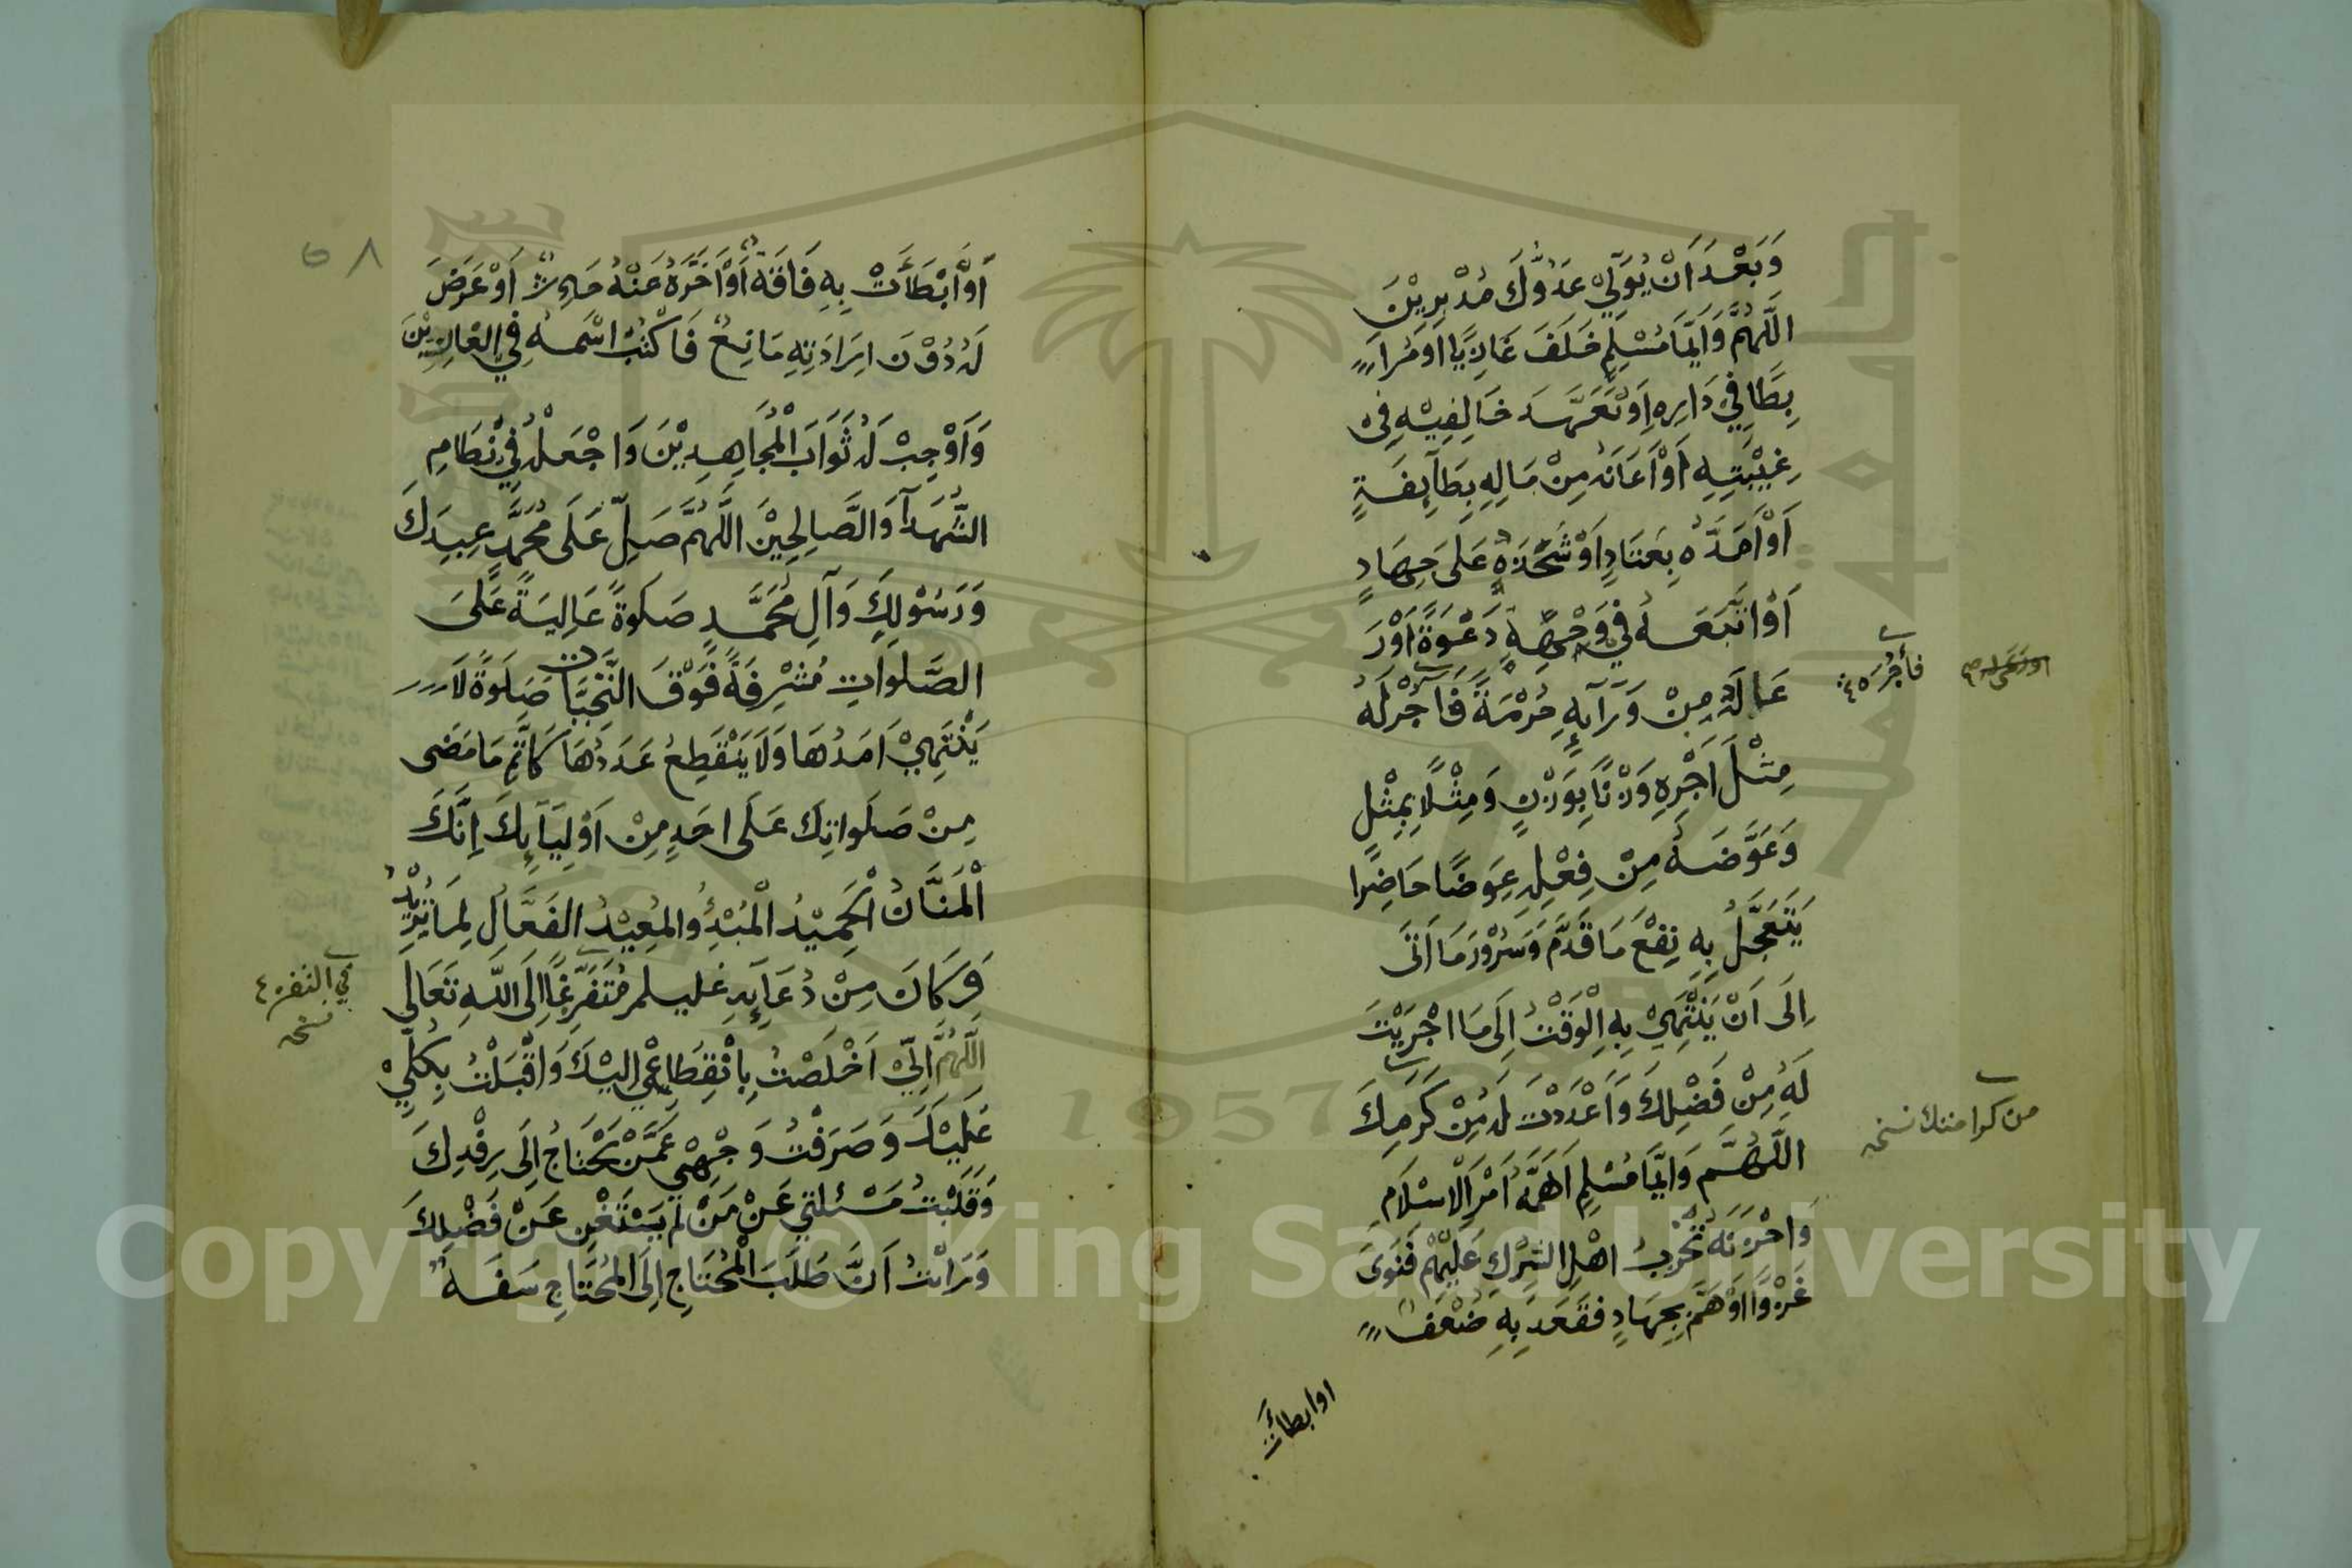 وَبَعْدَ اَنْ يُوَلِّيَ عَدُوُّكَ مُدْبِرِيْنَ
اللَّهُمَّ وَاَيُّمَا مُسْلِمٍ خَلَفَ غَازِيًا اَوْ مُرَا
بِطًا فِيْ دَارِهِ اَوْ تَعَهَّدَ خَالِفِيْهِ فِيْ
غَيْبَتِهِ اَوْ اَعَانَهُ مِنْ مَالِهِ بِطَآئِفَةٍ
اَوْ اَمَدَّهُ بِعَتَادٍ اَوْ شَحَذَهُ عَلَى جِهَادٍ
اَوْ اتَّبَعَهُ فِيْ وَجْهِهِ دَعْوَةً اَوْ رَ
عَا لَهُ مِنْ وَرَآئِهِ حُرْمَةً فَاَجْرِ لَهُ
مِثْلَ اَجْرِهِ وَزْنًا بِوَزْنٍ وَمِثْلًا بِمِثْلٍ
وَعَوِّضَهُ مِنْ فِعْلِهِ عِوَضًا حَاضِرًا
يَتَعَجَّلُ بِهِ نَفْعَ مَا قَدَّمَ وَسُرُوْرَ مَا اَتَى
اِلَى اَنْ يَنْتَهِيَ بِهِ الْوَقْتُ اِلَى مَا اجْرَيْتَ
لَهُ مِنْ فَضْلِكَ وَاَعْدَدْتَ لَهُ مِنْ كَرَمِكَ
اللَّهُمَّ وَاَيُّمَا مُسْلِمٍ اَهَمَّهُ اَمْرُ الْاِسْلَامِ
وَاحْزَنَهُ تَحَزُّبُ اهْلِ الشِّرْكِ عَلَيْهِمْ فَنَوَى
غَزْوًا اَوْ هَمَّ بِجِهَادٍ فَقَعَدَ بِهِ ضُعْفٌ
اوابطأت
فأجره
من كرامتك نسخه
٥٨
اَوْ اَبْطَأَتْ بِهِ فَاقَةٌ اَوْ اَخَّرَهُ عَنْهُ حَادِثٌ اَوْ عَرَضَ
لَهُ دُوْنَ اِرَادَتِهِ مَانِعٌ فَاكْتُبْ اسْمَهُ فِي الْعَابِدِيْنَ
وَاَوْجِبْ لَهُ ثَوَابَ الْمُجَاهِدِيْنَ وَاجْعَلْهُ فِيْ نِظَامِ
الشُّهَدَآءِ وَالصَّالِحِيْنَ اللَّهُمَّ صَلِّ عَلَى مُحَمَّدٍ عَبِدِكَ
وَرَسُوْلِكَ وَآلِ مُحَمَّدٍ صَلَوةً عَالِيَةً عَلَى
الصَّلَوَاتِ مُشْرِفَةً فَوْقَ التَّحِيَّاتِ صَلَوةً لَا
يَنْتَهِيْ اَمَدُهَا وَلَا يَنْقَطِعُ عَدَدُهَا كَاَتَمِّ مَا مَضَى
مِنْ صَلَوَاتِكَ عَلَى احَدٍ مِنْ اَوْلِيَآئِكَ اِنَّكَ
الْمَنَّانُ الْحَمِيْدُ الْمُبْدِئُ والمُعِيْدُ الفَعَّالُ لِمَا تُرِيْدُ
وَكَانَ مِنْ دُعَآئِهِ عليلم مُتَفَرِّغًا اِلَى اللّٰهِ تَعَالَى
اللَّهُمَّ اِنِّيْ اَخْلَصْتُ بِانْقِطَاعِيْ اِلَيْكَ وَاَقْبَلْتُ بِكُلِّيْ
عَلَيْكَ وَصَرَفْتُ وَجْهِيْ عَمَّنْ يَحْتَاجُ اِلَى رِفْدِكَ
وَقَلَبْتُ مَسْئَلَتِي عَنْ مَنْ لَمْ يَسْتَغْنِ عَنْ فَضْلِكَ
وَرَاَيْتُ اَنَّ طَلَبَ الْمُحْتَاجِ اِلَى الْمُحْتَاجِ سَفَهٌ
نسخه
Copyright © King Saud University
1957